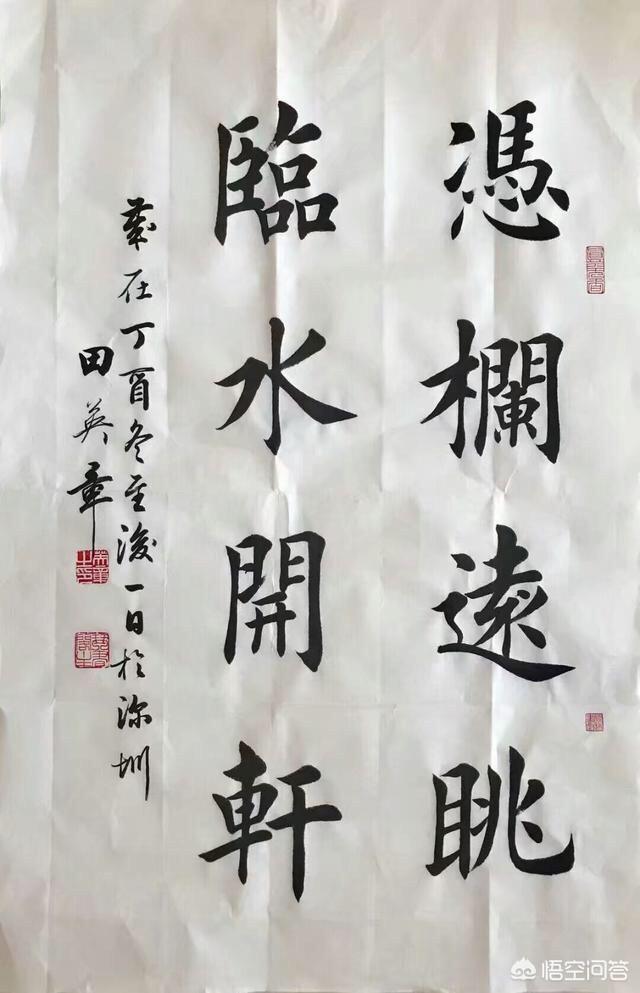 憑欄遠眺
臨水開軒
歲在丁酉冬至後一日於深圳
田英章
悟空问答